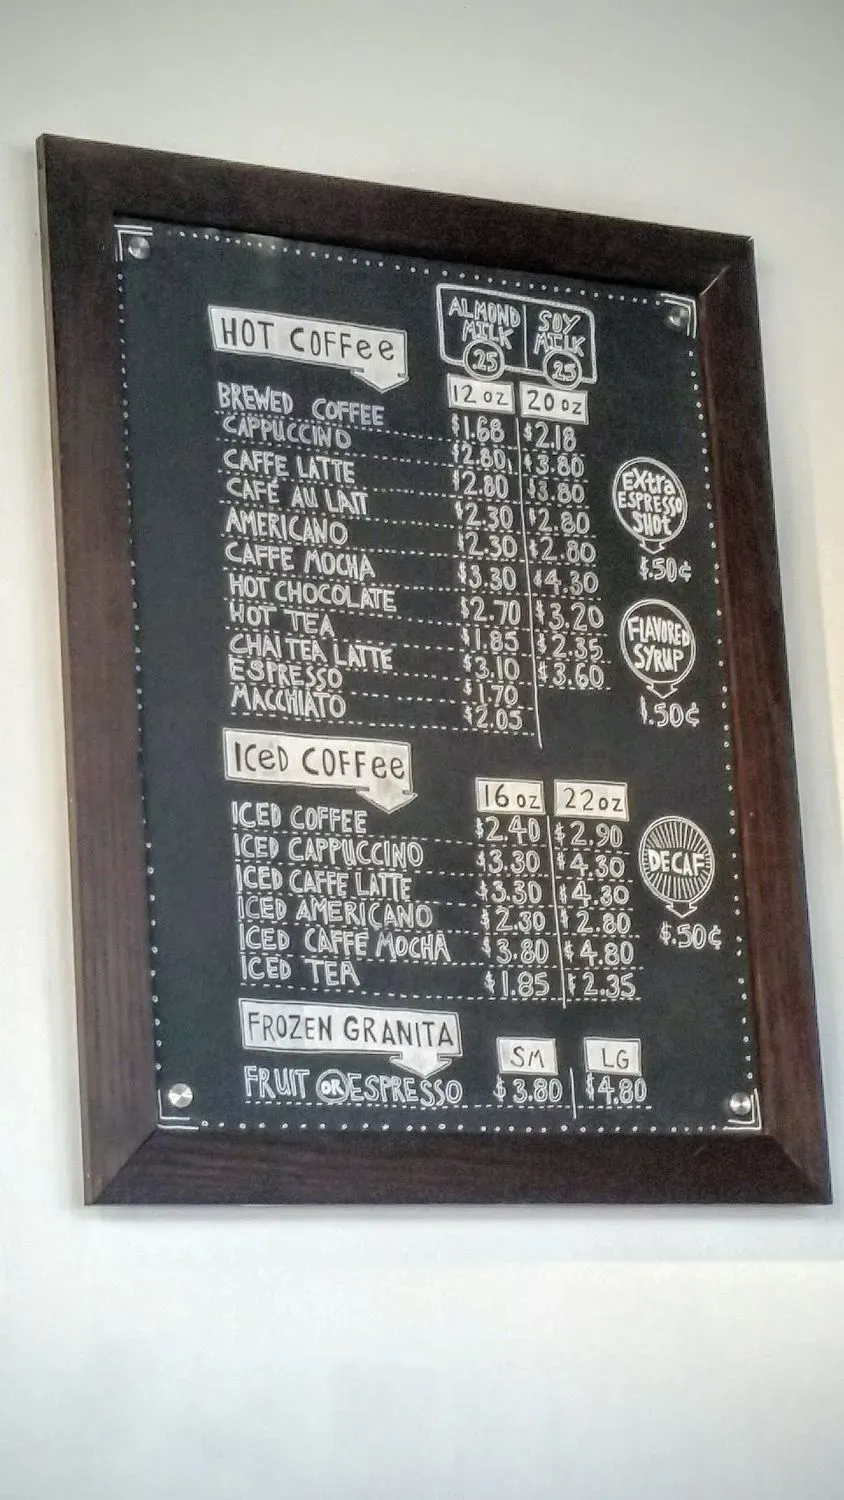 ALMOND MILK .25 SOY MILK .25
HOT COFFee
12 oz 20 oz
BREWED COFFEE $1.68 $2.18
CAPPUCCINO $2.80 $3.80
CAFFE LATTE $2.80 $3.80
CAFÉ AU LAIT $2.30 $2.80
AMERICANO $2.30 $2.80
CAFFE MOCHA $3.30 $4.30
HOT CHOCOLATE $2.70 $3.20
HOT TEA $1.85 $2.35
CHAI TEA LATTE $3.10 $3.60
ESPRESSO $1.70
MACCHIATO $2.05
EXtra
ESPRESSO
SHOt
$.50¢
FLAVORED
SYRUP
$.50¢
ICeD COFFee
16 oz 22oz
ICED COFFEE $2.40 $2.90
ICED CAPPUCCINO $3.30 $4.30
ICED CAFFE LATTE $3.30 $4.30
ICED AMERICANO $2.30 $2.80
ICED CAFFE MOCHA $3.80 $4.80
ICED TEA $1.85 $2.35
DECAF
$.50¢
FROZEN GRANITA
SM LG
FRUIT OR ESPRESSO $3.80 $4.80